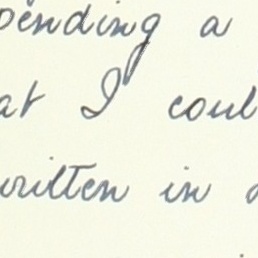 pending a
at I coul
written in